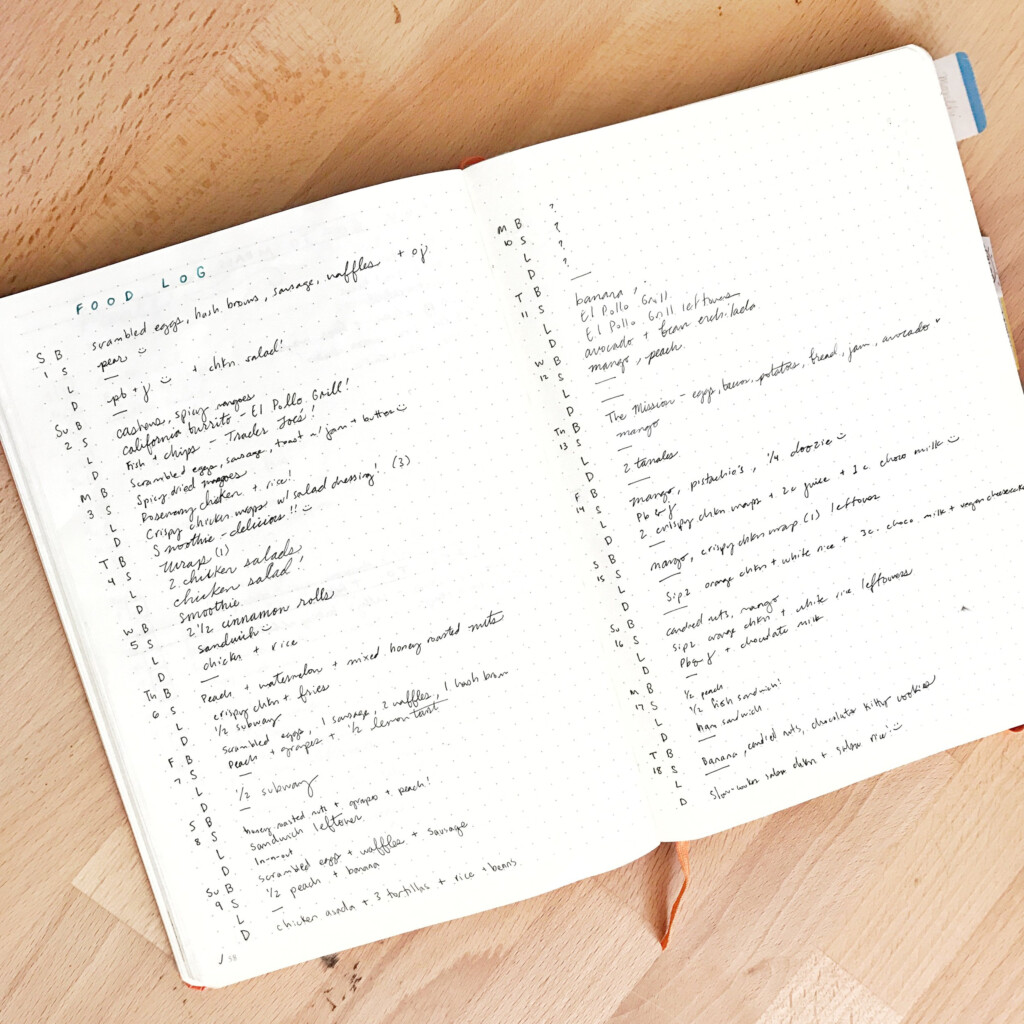 FOOD LOG
S B scrambled eggs, hash browns, sausage, waffles + oj
1 S pear ☺
L —
D pb + j ☺ + chkn. salad!
Su B —
2 S cashews, spicy mangoes
L california burrito - El Pollo Grill!
D Fish + chips - Trader Joe's!
M B Scrambled eggs, sausage, toast w/ jam + butter ☺
3 S Spicy dried mangoes
L Rosemary chicken + rice!
D Crispy chicken wraps w/ salad dressing! (3)
T B Smoothie - delicious!!
4 S Wrap (1)
L 2 chicken salads
D chicken salad!
W B smoothie
5 S 2 1/2 cinnamon rolls
L sandwich ☺
D chicken + rice
Th B —
6 S Peach + watermelon + mixed honey roasted nuts
L crispy chkn + fries
D 1/2 subway
F B scrambled eggs, 1 sausage, 2 waffles, 1 hash brown
7 S Peach + grapes + 1/2 lemon tart
L —
D 1/2 subway
S B —
8 S honey roasted nuts + grapes + peach!
L sandwich leftover
D In-n-out
Su B scrambled eggs + waffles + sausage
9 S 1/2 peach + banana
L —
D chicken asada + 3 tortillas + rice + beans
M B ?
10 S ?
L ?
D ?
T B —
11 S banana,
L El Pollo Grill
D El Pollo Grill leftovers
W B avocado + bean enchilada
12 S mango, peach
L —
D —
Th B The Mission - eggs, bacon, potatoes, bread, jam, avocado +
13 S mango
L —
D 2 tamales
F B —
14 S mango, pistachio's, 1/4 doozie ☺
L Pb & J
D 2 crispy chkn wraps + 2c juice + 1c. choco milk ☺
S B —
15 S mango, crispy chkn wrap (1) leftovers
L —
D Sip2 orange chkn + white rice + 3c. choco. milk + vegan cheesecake
Su B —
16 S candied nuts, mango
L Sip2 orange chkn + white rice leftovers
D Pb & J + chocolate milk
M B —
17 S 1/2 peach
L 1/2 fish sandwich!
D ham sandwich
T B —
18 S Banana, candied nuts, chocolate kitty cookies
L —
D Slow-cooker salsa chkn + salsa rice! ☺